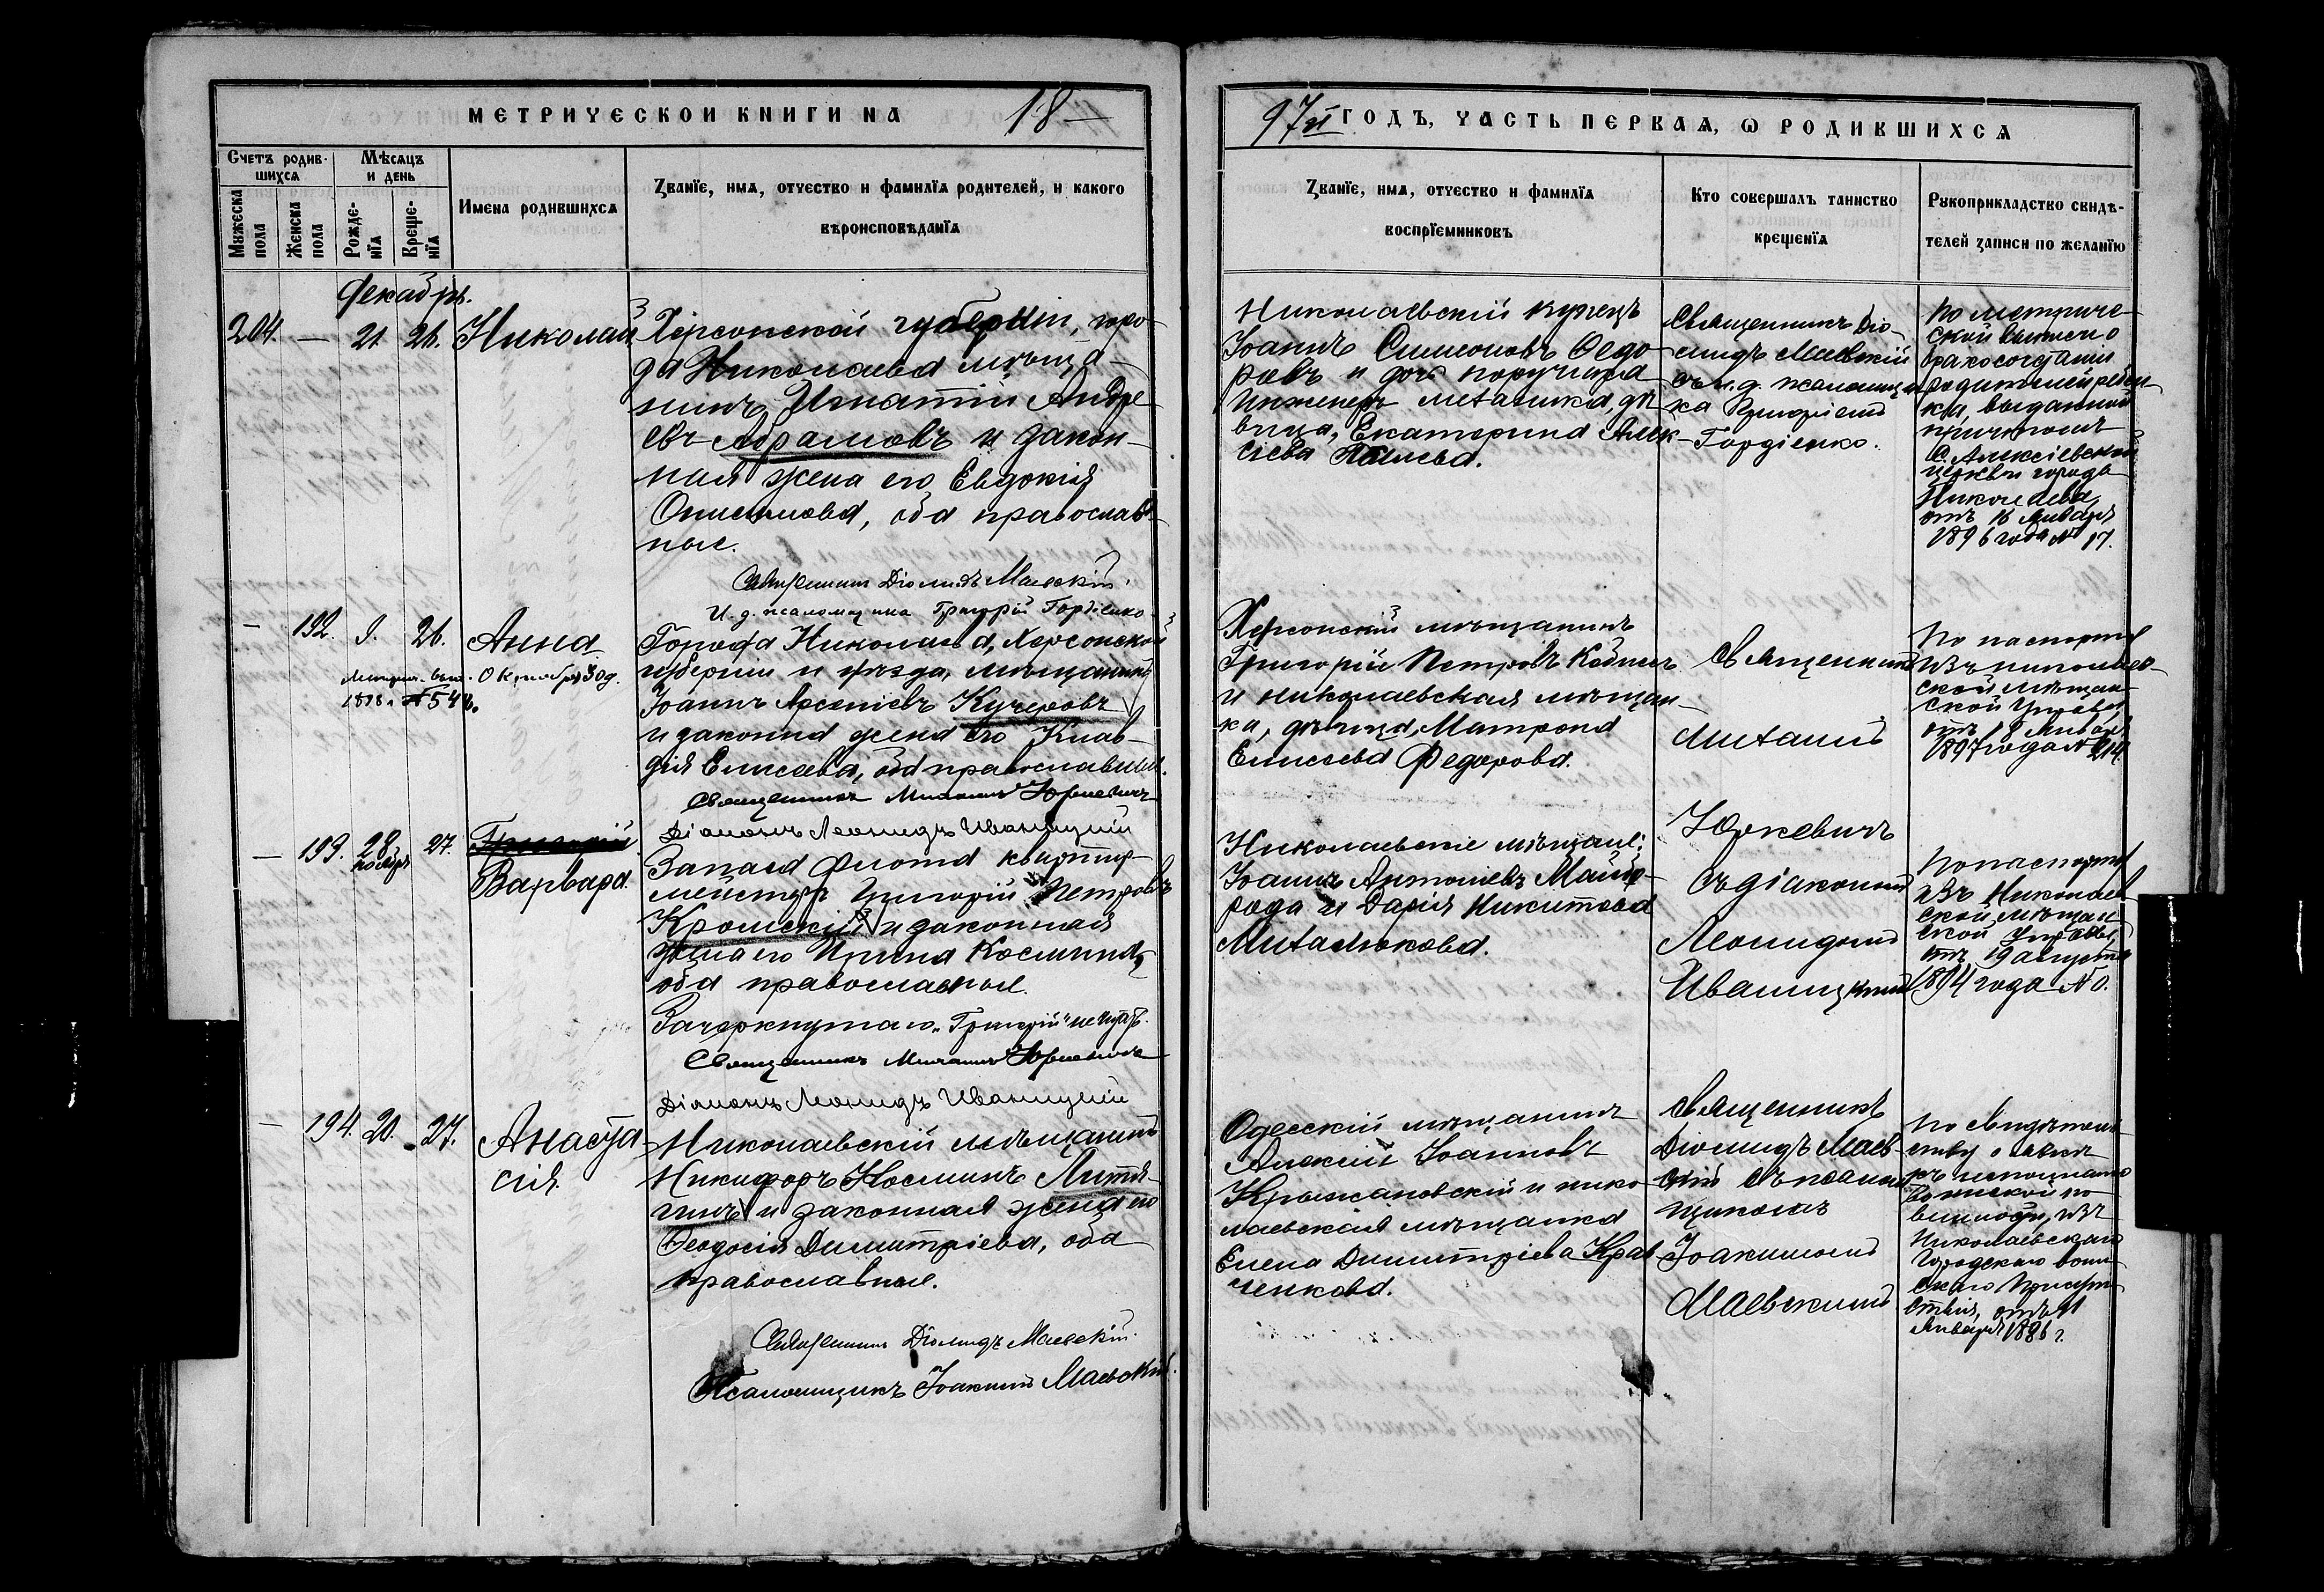 МЕТРИЧЕСКОЙ КНИГИ НА 18—
97й ГОДЪ, ЧАСТЬ ПЕРВАЯ, Ѡ РОДИВШИХСЯ
Счетъ родив-
шихся
Мѣсяцъ
и день
Мужеска
пола
Женска
пола
Рожде-
нія
Креще-
нія
Имена родившихся
Званїе, имя, отчество и фамилїя родителей, и какого
вѣроисповѣданїя
Званїе, имя, отчество и фамилїя
воспрїемниковъ
Кто совершалъ таинство
крещенїя
Рукоприкладство свидѣ-
телей записи по желанїю
Декабрь.
204. — 21. 26. Николай
Херсонской губерніи, горо-
да Николаева мѣща-
нинъ Игнатій Андре
евъ Абрамовъ и закон-
ная жена его Евдокія
Онисимова, оба православ-
ные.
Священникъ Діомидъ Маевскій.
И. д. псаломщика Григорій Гордіенко.
Николаевскій купецъ
Іоаннъ Симеоновъ Ѳедо-
ровъ и дочь поручика
инженеръ механика, дѣ-
вица, Екатерина Алек-
сіева
Священникъ Діо-
мидъ Маевскій
съ и. д. псаломщи
ка Григоріемъ
Гордіенко.
По метриче-
ской выписи о
бракосочетаніи
родителей ребен-
ка, выданной
причтомъ
С. Алексіевской
церкви города
Николаева,
отъ 16 Января
1896 года № 17.
— 192. 9. 26. Анна
Метрич. вып. Октября 30 д.
1898 г. № 54
Города Николаева, Херсонской
губерніи и уѣзда, мѣщанинъ
Іоаннъ Арсеніевъ Кучеровъ
и законная жена его Клав-
дія Елисеева, оба православные.
Священникъ Михаилъ Юркевичъ
Діаконъ Леонидъ Иваницкій
Херсонскій мѣщанинъ
Григорій Петровъ
и николаевская мѣщан-
ка, дѣвица, Матрона
Елисеева Федорова.
Священникъ
Михаилъ
Юркевичъ
съ діакономъ
Леонидомъ
Иваницкимъ
По паспорту
изъ николаев-
ской мѣщан-
ской Управы,
отъ 18 Января
1897 года № 214.
— 193. 28. 27. Григорій
ноября
Варвара.
Запаса флота квартир-
мейстеръ Григорій Петровъ
Кромскій и законная
жена его Ирина Космина,
оба православные.
Зачеркнутаго „Григорій" не читать.
Священникъ Михаилъ Юркевичъ
Діаконъ Леонидъ Иваницкій
Николаевскіе мѣщане:
Іоаннъ Антоніевъ Майбо-
рода и Дарія Никитова
Михалюкова.
По паспорту
изъ Николаев
ской мѣщан-
ской Управы,
отъ 19 августа
1894 года № 0.
— 194. 20. 27. Анаста
сія.
Николаевскій мѣщанинъ
Никифоръ Косминъ Литя-
гинъ и законная жена его
Ѳеодосія Димитріева, оба
православные.
Священникъ Діомидъ Маевскій.
Псаломщикъ Іоакимъ Маевскій.
Одесскій мѣщанинъ
Алексій Іоанновъ
Крыжановскій и нико-
лаевская мѣщанка
Елена Димитріева Крав
ченкова.
Священникъ
Діомидъ Маев-
скій съ псалом
щикомъ
Іоакимомъ
Маевскимъ
По свидѣтель-
ству о явкѣ
къ исполненію
воинской по-
винности, изъ
Николаевскаго
Городскаго воин-
скаго Присут-
ствія, отъ 11
Января 1886 г.